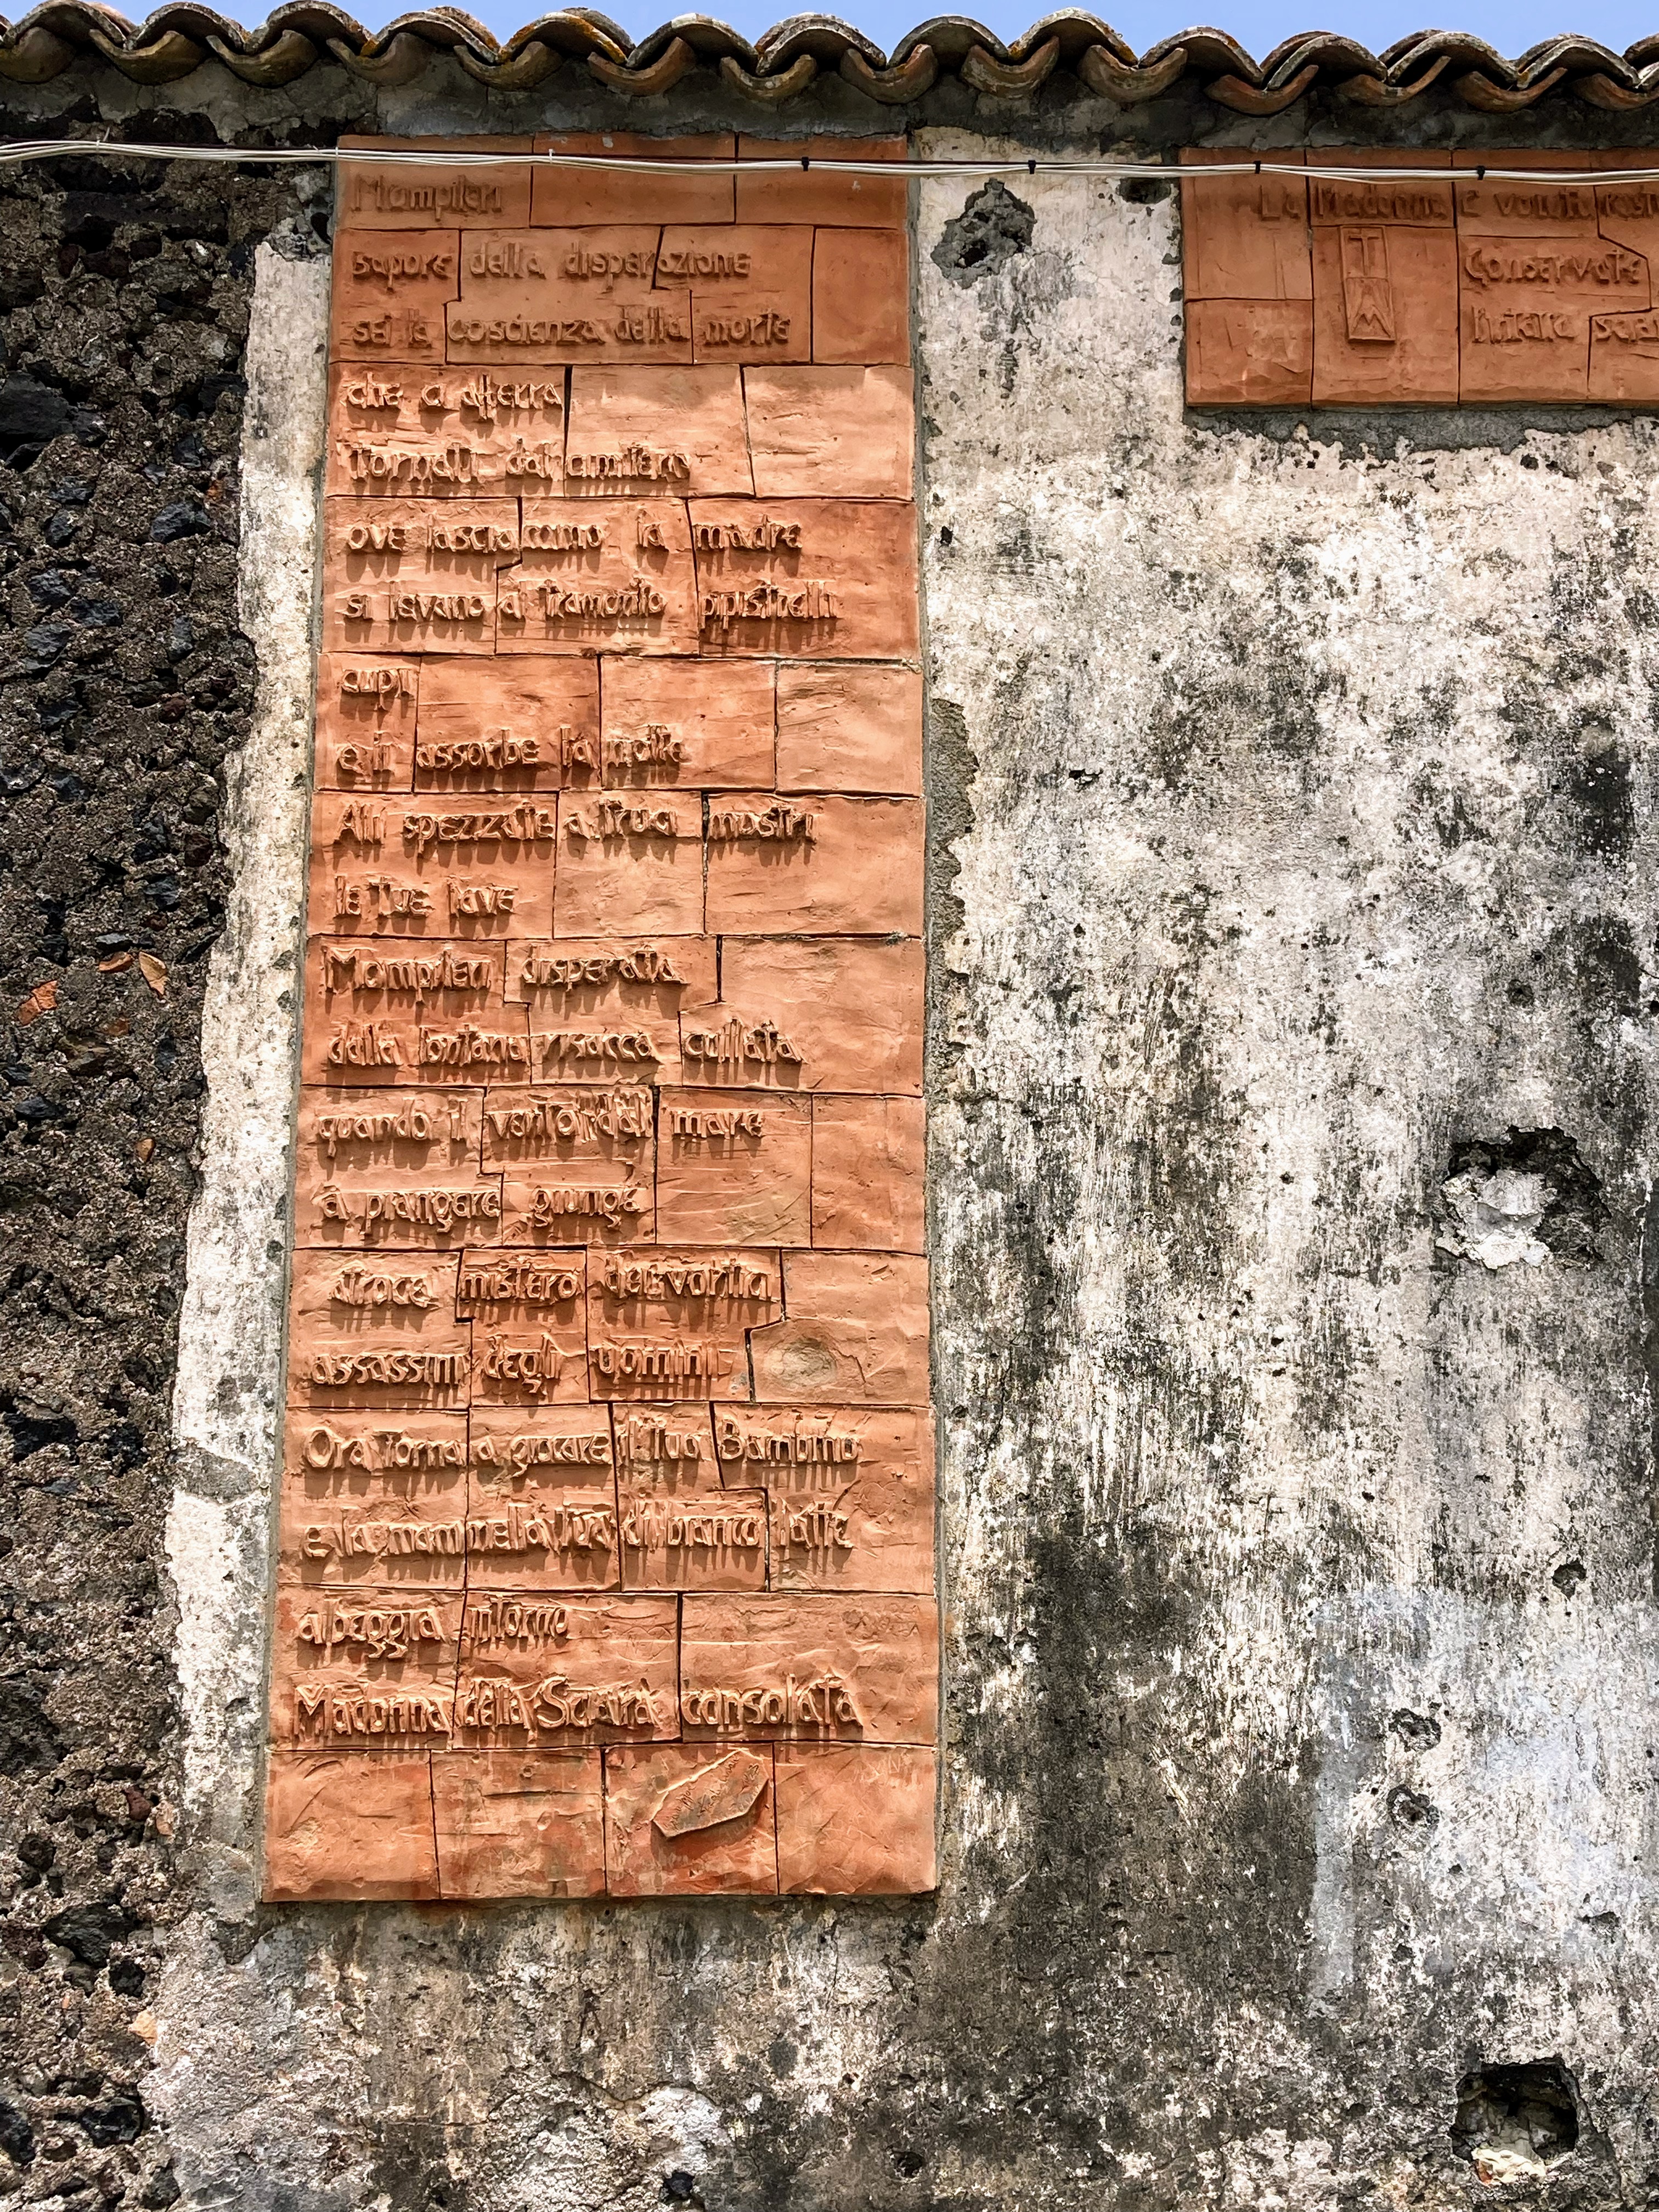 Mompileri
sapore della disperazione
sei la coscienza della morte
che ci atterra
Tornati dal cimitero
ove lascia uomo la madre
si levano al tramonto pipistrelli
cupi
e li assorbe la notte
Ali spezzate a truci mostri
le Tue lave
Mompileri disperata
dalla lontana risacca cullata
quando il vento del mare
a piangere giunge
atroce mistero
assassini degli uomini
Ora torna a giocare il Tuo Bambino
e la mammella Tua di bianco latte
albeggia intorno
Madonna della Sciara consolata
La Madonna è voluta
Conservate
TM